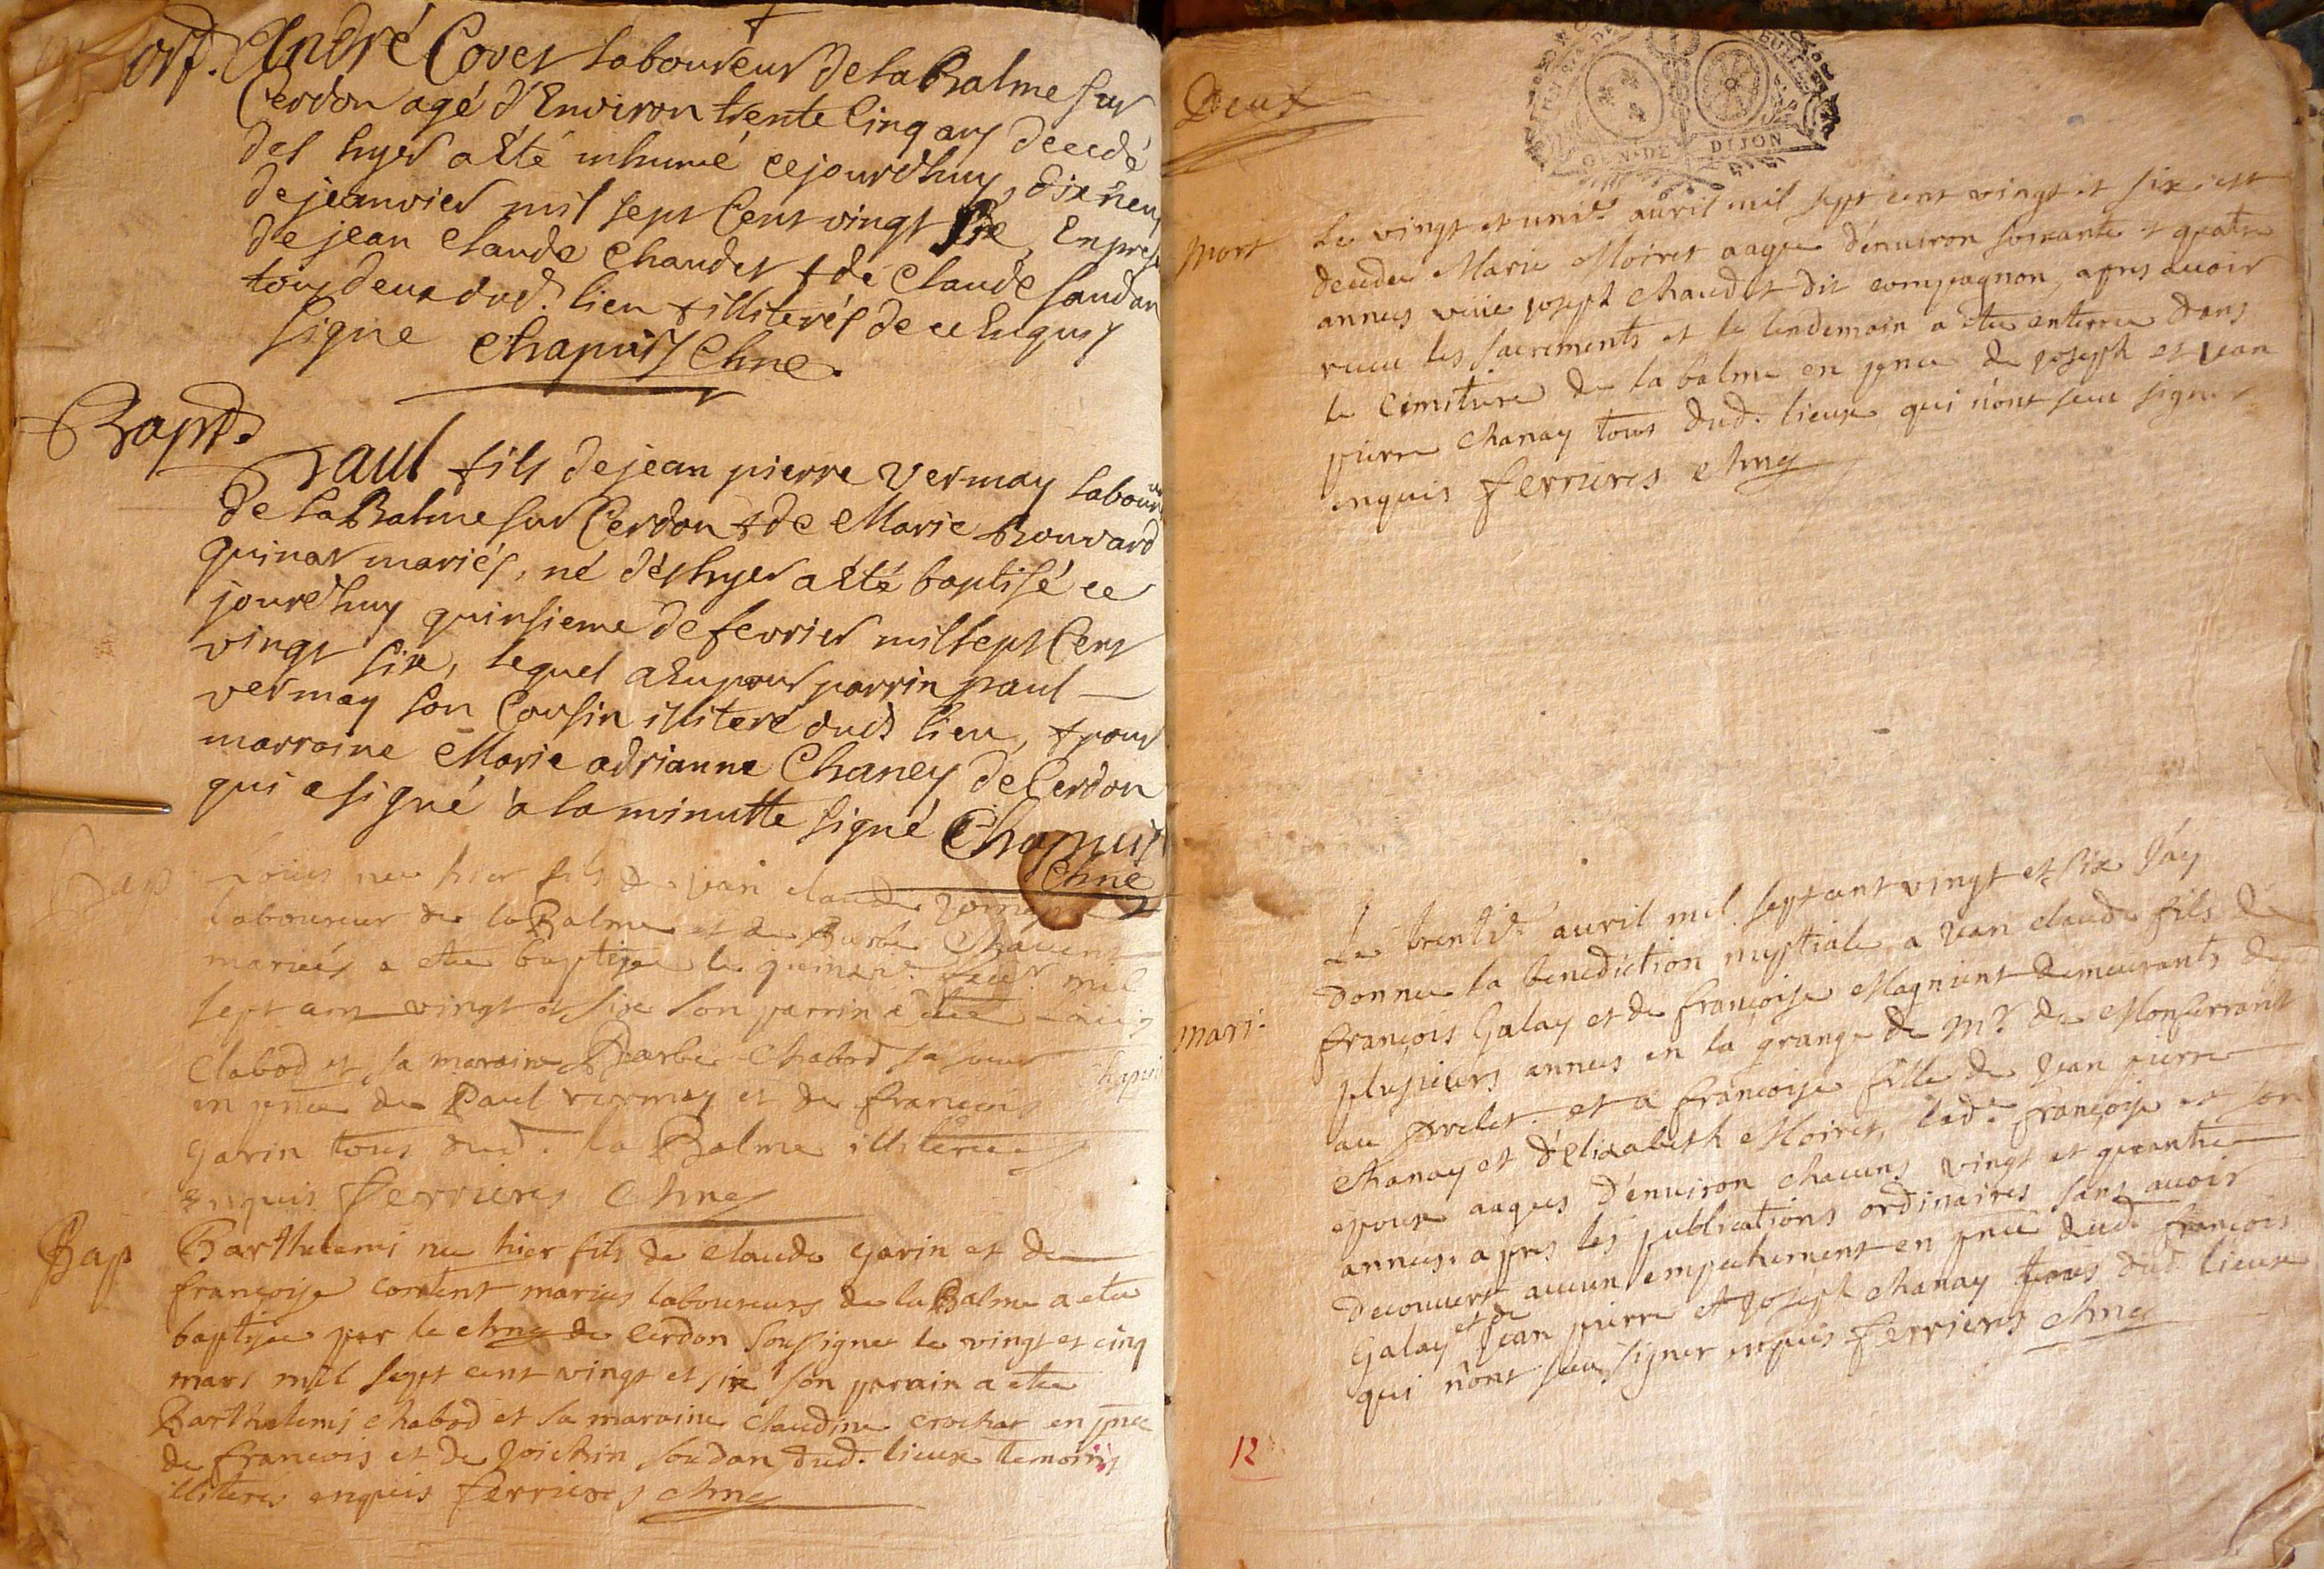 Mort. André Covet laboureur de la Balme sur
Cerdon agé d'Environ trente Cinq ans decedé
des hyer a Eté inhumé cejourd'huy, dix neuf
de jeanvier mil sept Cent vingt six, En prese
de jean Claude Chaudet & de Claude Saudan
tous deux dud. lieu & illiterés de ce Enquis
signe Chapuis Chne.
Bapt.
Paul fils de jean pierre vermay labour
de la Balme sur Cerdon & de Marie Bouvard
quinar mariés, né dés hyer a Eté baptisé ce
jourd'huy quinsieme de fevrier mil sept Cent
vingt six, lequel a Eu pour parrin paul
vermay son Cousin illiteré dud lieu, & pour
marraine Marie adrianne Chaney de Cerdon
qui a signé à la minutte signé Chapuis
Chne
Bap
nee hier fils de jean claude
laboureur de la Balme et de Barbe
mariés a etee baptisee le mil
sept cent vingt et six son parrin a etee
Chabod et sa maraine Barbe Chabod sa
en pnce de Paul vermay et de francois
Garin tous dud. la Balme illiterees
enquis ferrieres Chne
Bap Barthelemi ne hier fils de claude garin et de
françoise content maries laboureurs de la Balme a etee
baptisee par le chne de Cerdon soussignee le vingt et cinq
mars mil sept cent vingt et six son parain a etee
Barthelemi chabod et sa maraine claudine crochat en pnce
de francois et de soudan dud. lieux temoins
illiterés enquis ferrieres chne
Deux
GEN. DE DIJON
mort Le vingt et uni.e avril mil sept cent vingt et six est
decedee Marie Moiret aagee d'enuiron soixante et quatre
annees joseph chaudet dit compagnon, apres avoir
receu les sacrements et le lendemain a etee enterree dans
le cimitiere de la balme en pnce de joseph et jean
pierre chanay tous dud. lieux qui n'ont sceu signer
enquis ferrieres chne
Le trenti.e auril mil sept cent vingt et six j'ay
donnee la benediction nuptiale a jean claude fils de
françois Galay et de françoise Magnient demeurants de
mari. plusieurs annees en la grange de Mr. de Monferrant
au et a françoise fille de jean pierre
chanay et d'elizabeth Moiret, lad.e françoise et son
epoux aagees d'enuiron chacuns vingt et quantre
annees. apres les publications ordinaires sans auoir
decouuert aucun empechement en pnce dud. francois
Galay et de jean pierre et joseph chanay tous dud. lieux
qui n'ont sceu signer enquis ferrieres chne
12